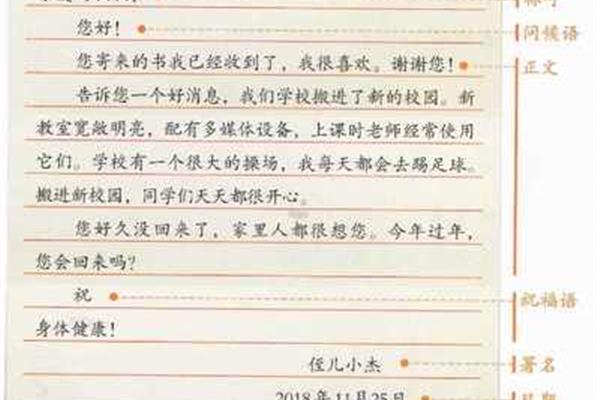 您好！
问候语
您寄来的书我已经收到了，我很喜欢。谢谢您！
正文
告诉您一个好消息，我们学校搬进了新的校园。新
教室宽敞明亮，配有多媒体设备，上课时老师经常使用
它们。学校有一个很大的操场，我每天都会去踢足球。
搬进新校园，同学们天天都很开心。
您好久没回来了，家里人都很想您。今年过年，
您会回来吗？
祝
祝福语
身体健康！
侄儿小杰
署名
2018年11月25日